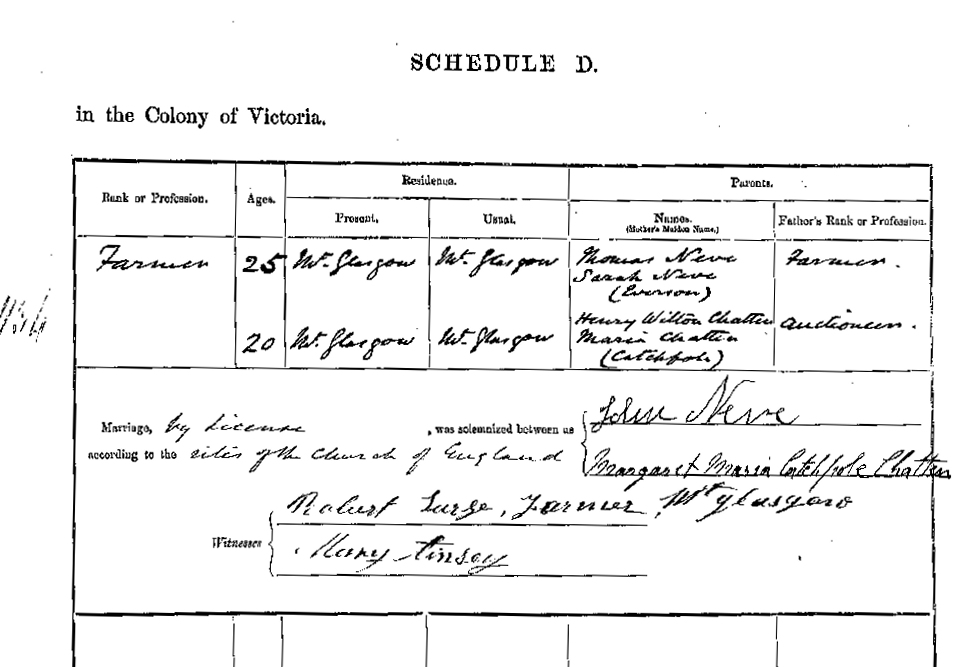 SCHEDULE D.
in the Colony of Victoria.
Rank or Profession. Ages. Residence. Parents.
Present. Usual. Names. Father's Rank or Profession.
(Mother's Maiden Name.)
Farmer 25 Mt. Glasgow Mt. Glasgow Thomas Neve Farmer.
Sarah Neve
(Everson)
Henry Wilton Chatten Auctioneer.
20 Mt. Glasgow Mt. Glasgow Maria Chatten
(Catchpole)
Marriage, by License, was solemnized between us John Neve
according to the rites of the Church of England Margaret Maria Catchpole Chatten
Robert Surge, Farmer, Mt Glasgow
Witnesses
Mary